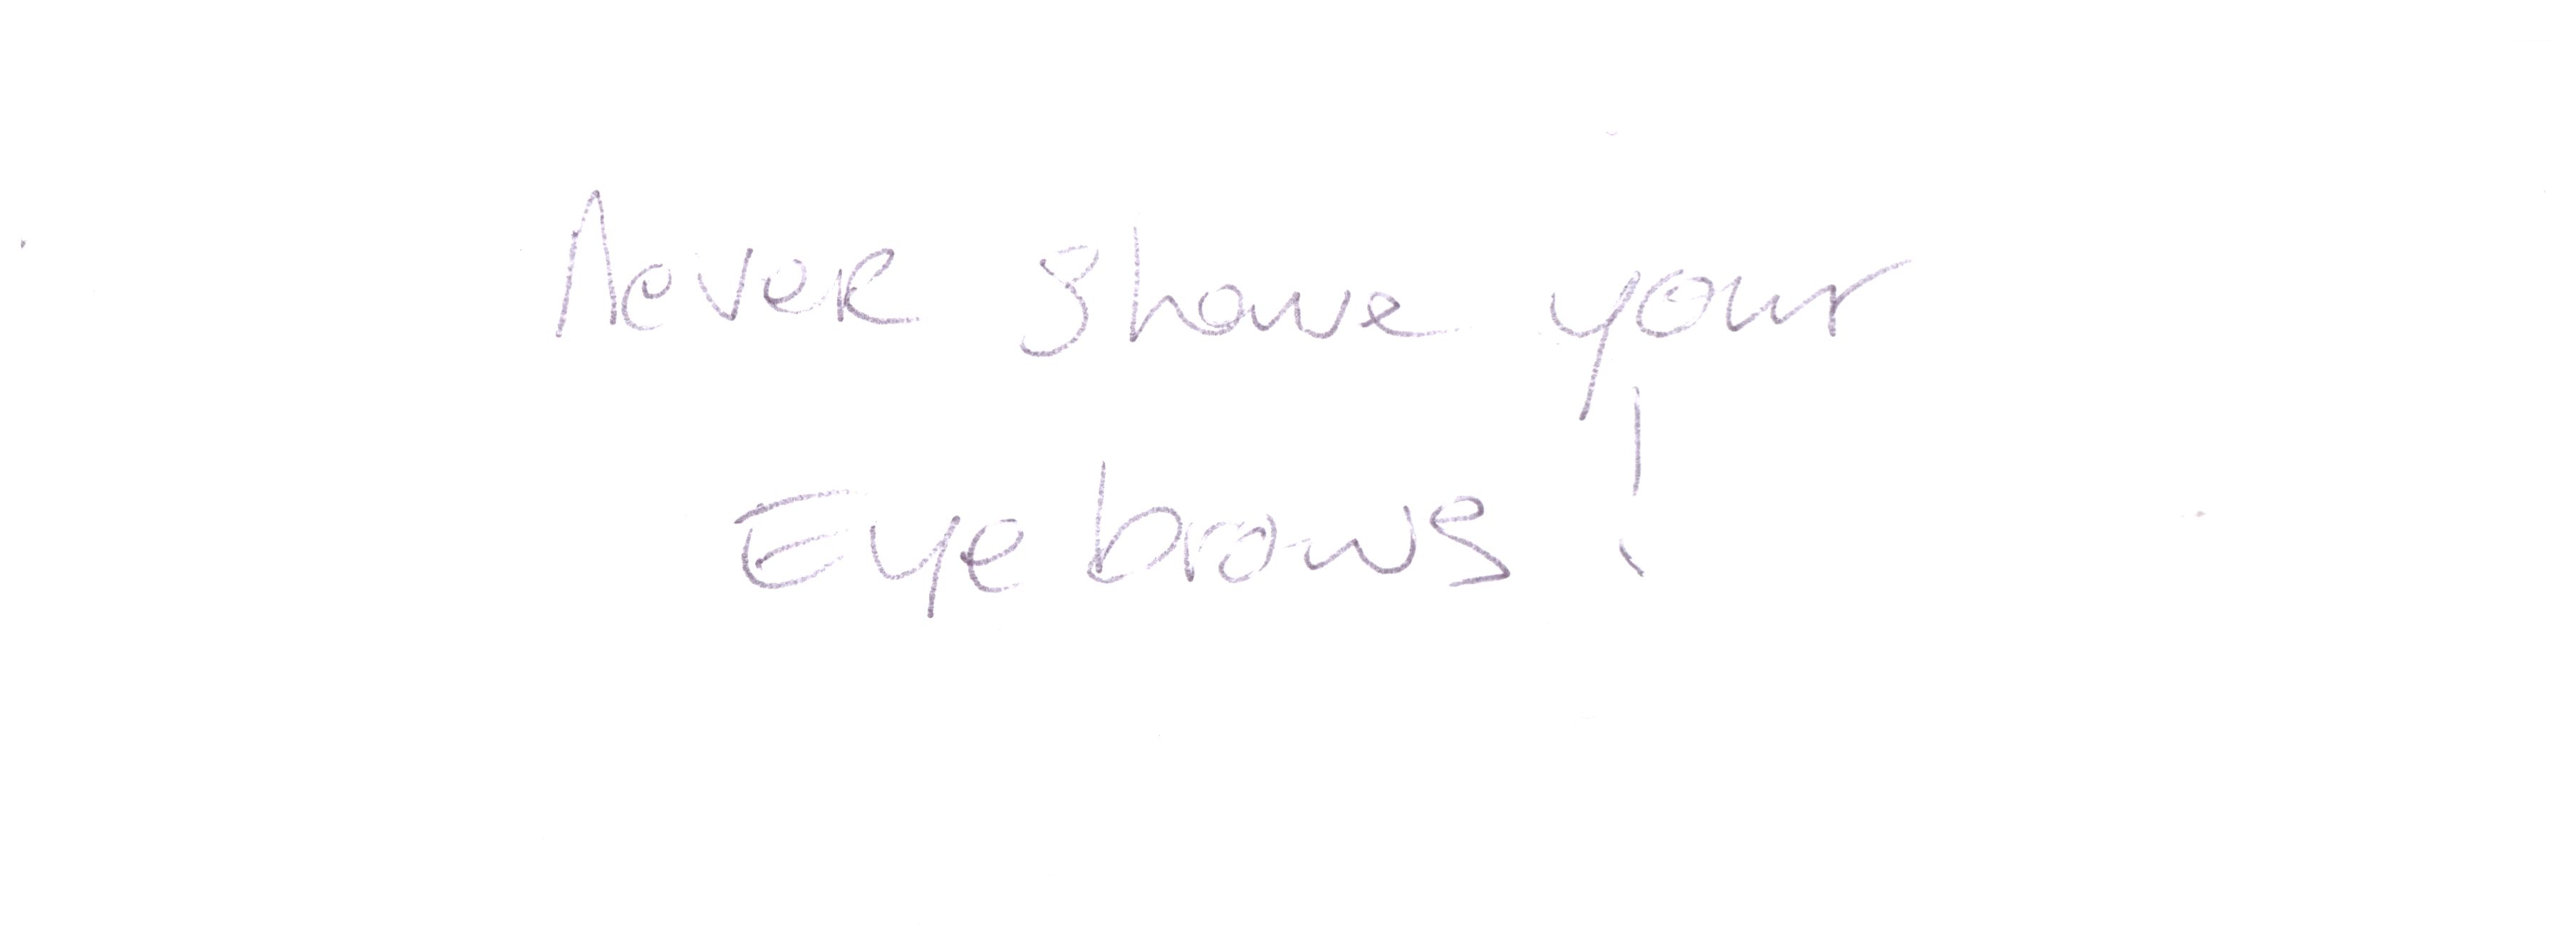 Never shave your
Eyebrows!